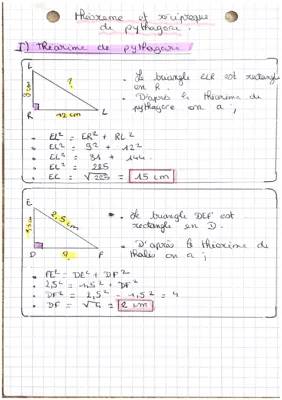 théorème et réciproque
de pythagore.
I) théorème de pythagore
L
?
9 cm
R
12 cm
L
• Le triangle ELR est rectangle
en R.
• D'après le théorème de
pythagore on a ;
• EL² = ER² + RL²
• EL² = 9² + 12²
• EL² = 81 + 144
• EL² = 225
• EL = √225 = 15 cm
E
2,5 cm
1,5 cm
D
?
F
• Le triangle DEF est
rectangle en D.
• D'après le théorème de
thales on a ;
• FE² = DE² + DF²
• 2,5² = 1,5² + DF²
• DF² = 2,5² - 1,5² = 4
• DF = √4 = 2 cm